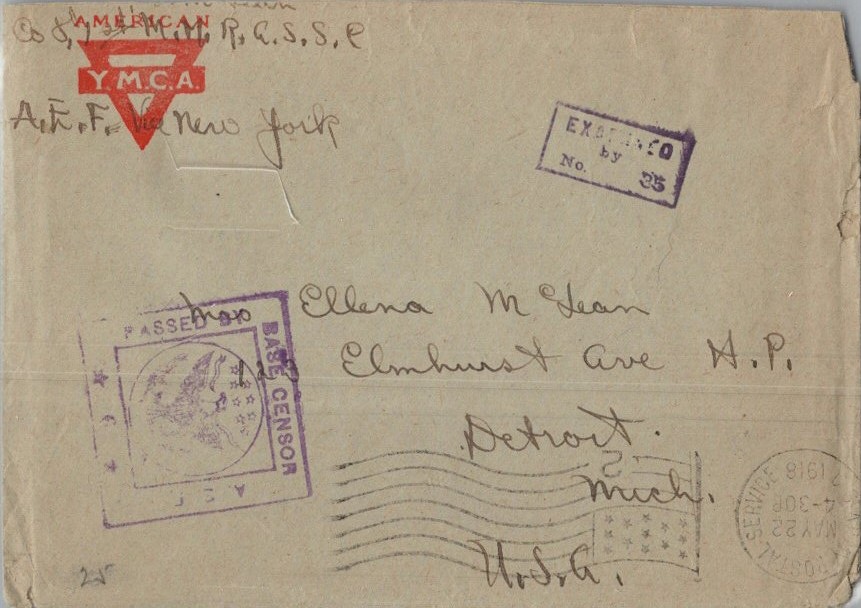 AMERICAN
Y.M.C.A.
Co 8, 1st M.M. R, A.S.S.C
A.E.F. Via New York
EXAMINED
by
No. 35
PASSED BY
BASE CENSOR
A E F
Mrs Ellena McLean
Elmhurst Ave H.P.
Detroit.
Mich.
U.S.A.
POSTAL SERVICE
MAY 22
4-30P
1918
25